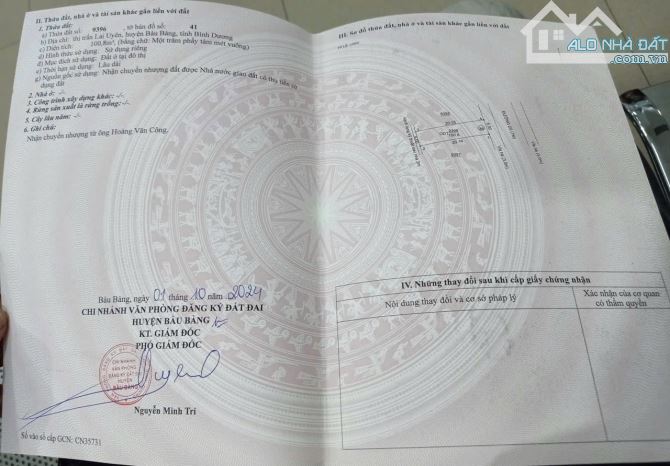 II. Thửa đất, nhà ở và tài sản khác gắn liền với đất
1. Thửa đất:
a) Thửa đất số: 9396 tờ bản đồ số: 41
b) Địa chỉ: thị trấn Lai Uyên, huyện Bàu Bàng, tỉnh Bình Dương
c) Diện tích: 100,8m², (bằng chữ: Một trăm phẩy tám mét vuông)
d) Hình thức sử dụng: Sử dụng riêng
đ) Mục đích sử dụng: Đất ở tại đô thị
e) Thời hạn sử dụng: Lâu dài
g) Nguồn gốc sử dụng: Nhận chuyển nhượng đất được Nhà nước giao đất có thu tiền sử
dụng đất
2. Nhà ở: -/-
3. Công trình xây dựng khác: -/-
4. Rừng sản xuất là rừng trồng: -/-
5. Cây lâu năm: -/-
6. Ghi chú:
Nhận chuyển nhượng từ ông Hoàng Văn Công.
Bàu Bàng, ngày 01 tháng 10 năm 2024
CHI NHÁNH VĂN PHÒNG ĐĂNG KÝ ĐẤT ĐAI
HUYỆN BÀU BÀNG
KT. GIÁM ĐỐC
PHÓ GIÁM ĐỐC
CHI NHÁNH
VĂN PHÒNG
ĐĂNG KÝ ĐẤT ĐAI
HUYỆN
BÀU BÀNG
Nguyễn Minh Trí
Số vào sổ cấp GCN: CN35731
III. Sơ đồ thửa đất, nhà ở và tài sản khác gắn liền với đất
9395
9396
9397
IV. Những thay đổi sau khi cấp giấy chứng nhận
Nội dung thay đổi và cơ sở pháp lý
Xác nhận của cơ quan
có thẩm quyền
ALO NHÀ ĐẤT